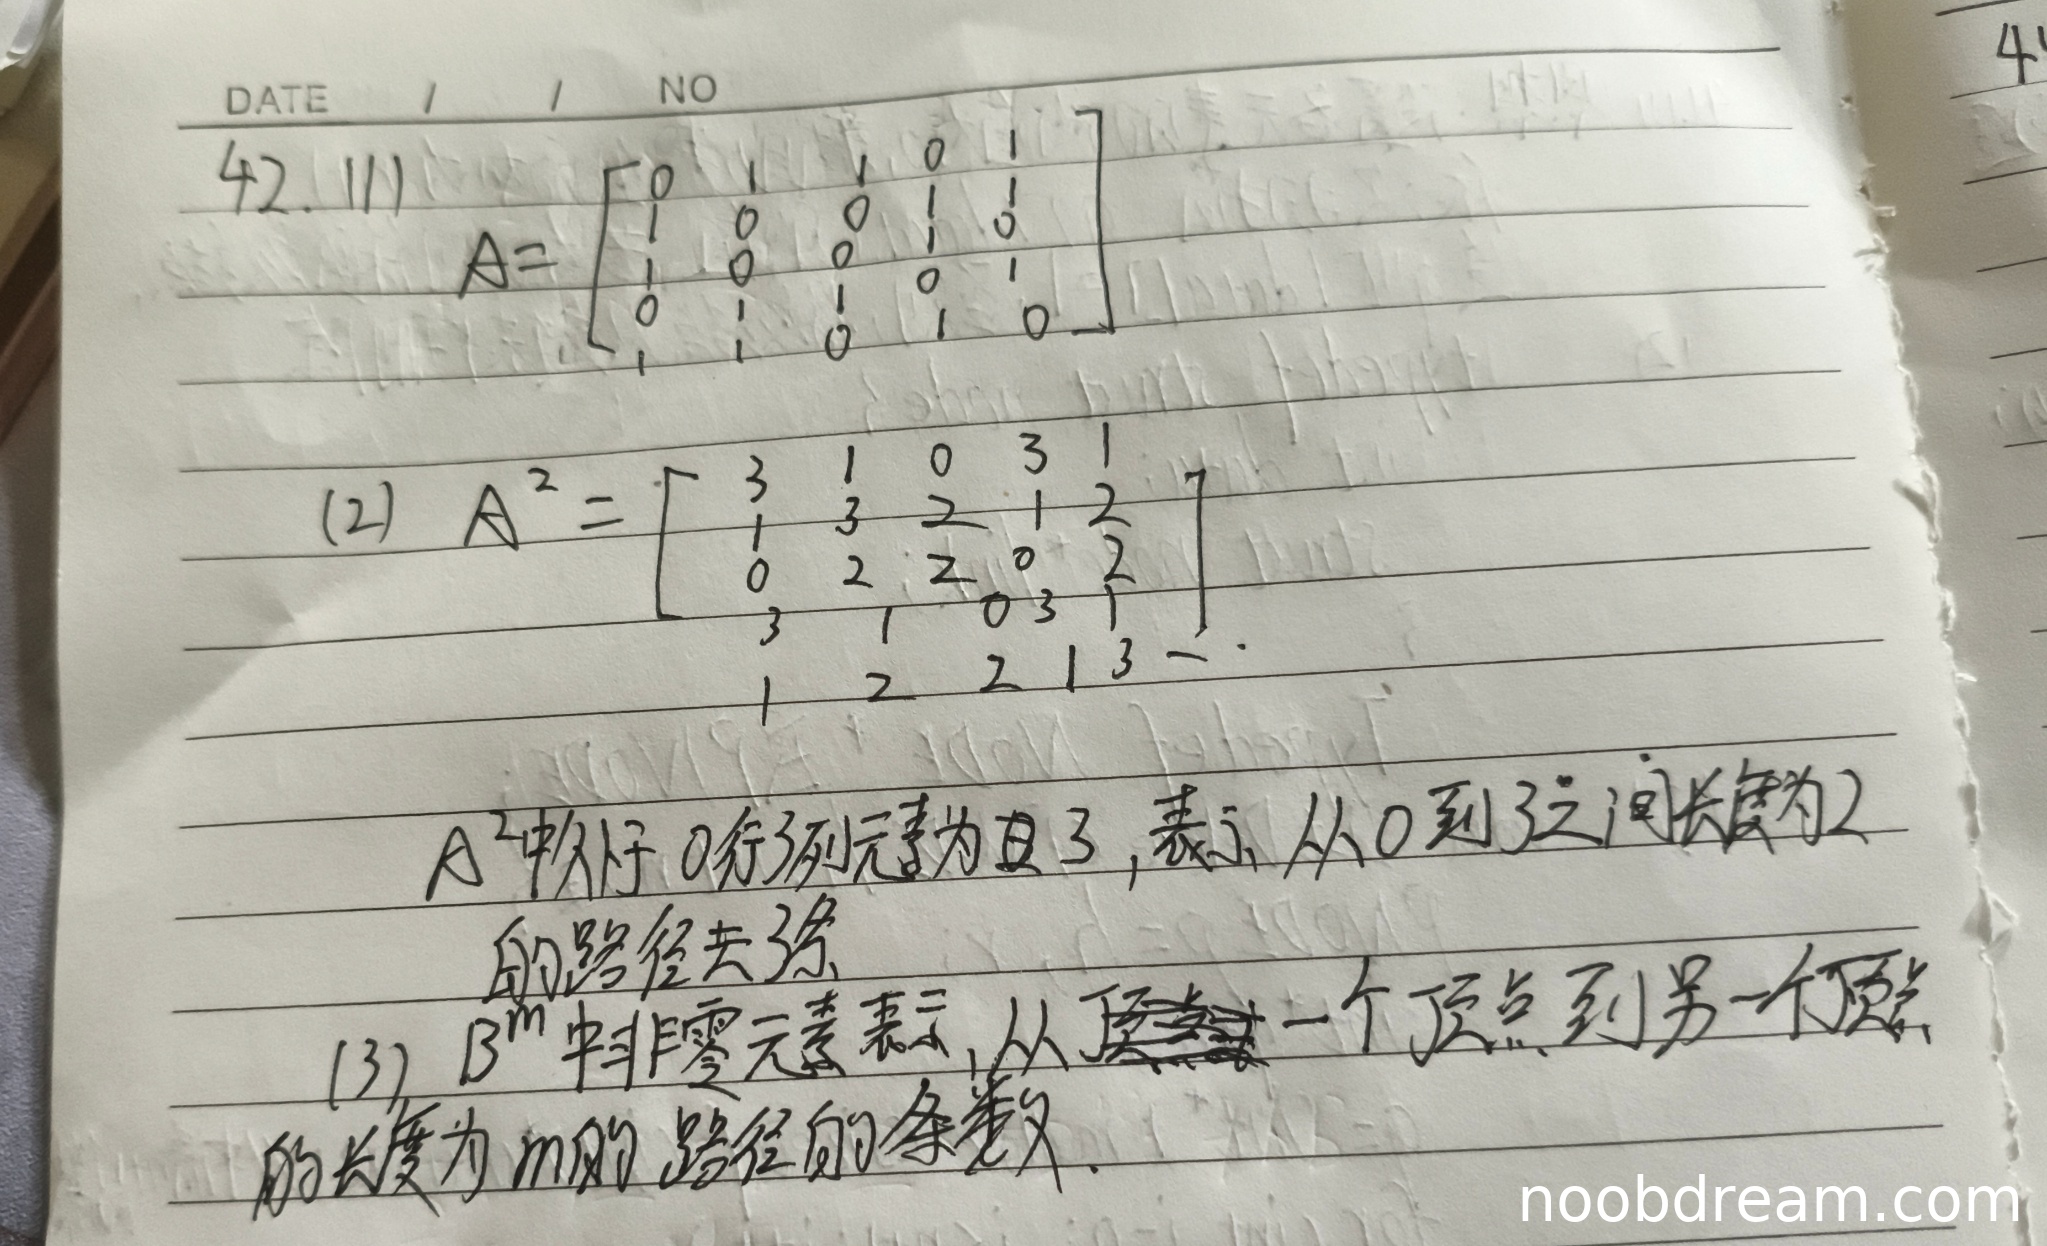 DATE / / NO
42. (1)
A = [ 0 1 1 0 1
1 0 0 1 1
1 0 0 1 0
0 1 1 0 1
1 1 0 1 0 ]
(2) A² = [ 3 1 0 3 1
1 3 2 1 2
0 2 2 0 2
3 1 0 3 1
1 2 2 1 3 ]
A²中处于0行3列元素为3,表示从0到3之间长度为2
的路径共3条
(3) Bᵐ中非零元素表示,从一个顶点到另一个顶点
的长度为m的路径的条数.
noobdream.com